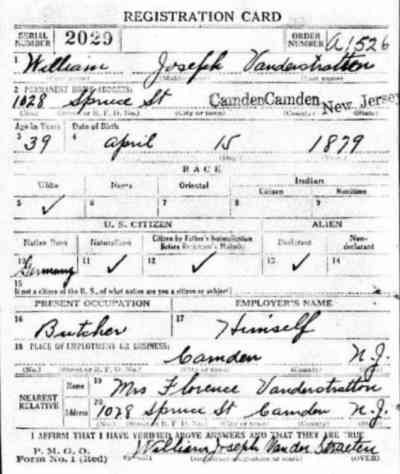 REGISTRATION CARD
SERIAL NUMBER 2029 ORDER NUMBER A1526
1 William Joseph Vanderstratten
2 PERMANENT HOME ADDRESS:
1028 Spruce St Camden Camden New Jersey
(No.) (Street or R. F. D. No.) (City or town) (County) (State)
Age in Years Date of Birth
3 39 4 April 15 1879
RACE
White Negro Oriental Indian
Citizen Noncitizen
5 ✓ 6 7 8 9
U. S. CITIZEN ALIEN
Native Born Naturalized Citizen by Father's Naturalization Before Registrant's Majority Declarant Non-declarant
10 Germany 11 ✓ 12 ✓ 13 ✓ 14
15
If not a citizen of the U. S., of what nation are you a citizen or subject?
PRESENT OCCUPATION EMPLOYER'S NAME
16 Butcher 17 Himself
18 PLACE OF EMPLOYMENT OR BUSINESS:
Camden N.J.
(No.) (Street or R. F. D. No.) (City or town) (County) (State)
NEAREST RELATIVE Name 19 Mrs Florence Vanderstratton
Address 20 1028 Spruce St Camden N.J.
I AFFIRM THAT I HAVE VERIFIED ABOVE ANSWERS AND THAT THEY ARE TRUE
P. M. G. O.
Form No. 1 (Red) William Joseph Van der Straeten (OVER)